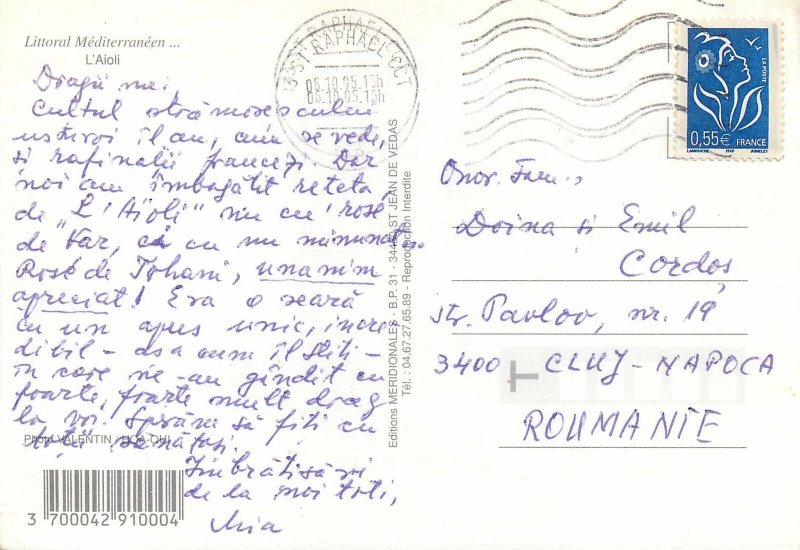 Littoral Méditerranéen ...
L'Aioli
Dragii mei,
Cultul strămoşescului
usturoi îl au, cum se vede,
şi rafinaţii francezi. Dar
noi am îmbogăţit reteta
de "L'Aïoli" nu cu rosé
de Var, ci cu un minunat
Rosé de Tohani, unanim
apreciat! Era o seară
cu un apus unic, incre
dibil - aşa cum îl ştiţi -
în care ne-am gândit cu
foarte, foarte mult drag
la voi. Sperăm să fiţi cu
toţii sănătoşi.
Îmbrăţişări
de la noi toti,
Mia
Photo VALENTIN /
3 700042 910004
Editions MERIDIONALES - B.P. 31 - ST JEAN DE VEDAS
Tél. : 04.67.27.65.89 - Reproduction Interdite
ST RAPHAEL CCT
LA POSTE
0,55€ FRANCE
LAMOUCHE ITVF JUMELET
Onor. Fam.,
Doina si Emil
Cordoş
str. Pavlov, nr. 19
3400 CLUJ-NAPOCA
ROUMANIE